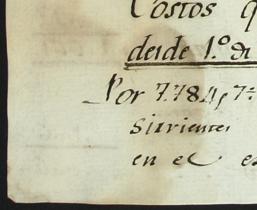 Costos q
desde 1.º de
Por 7784, 7
Sirvientes
en el es